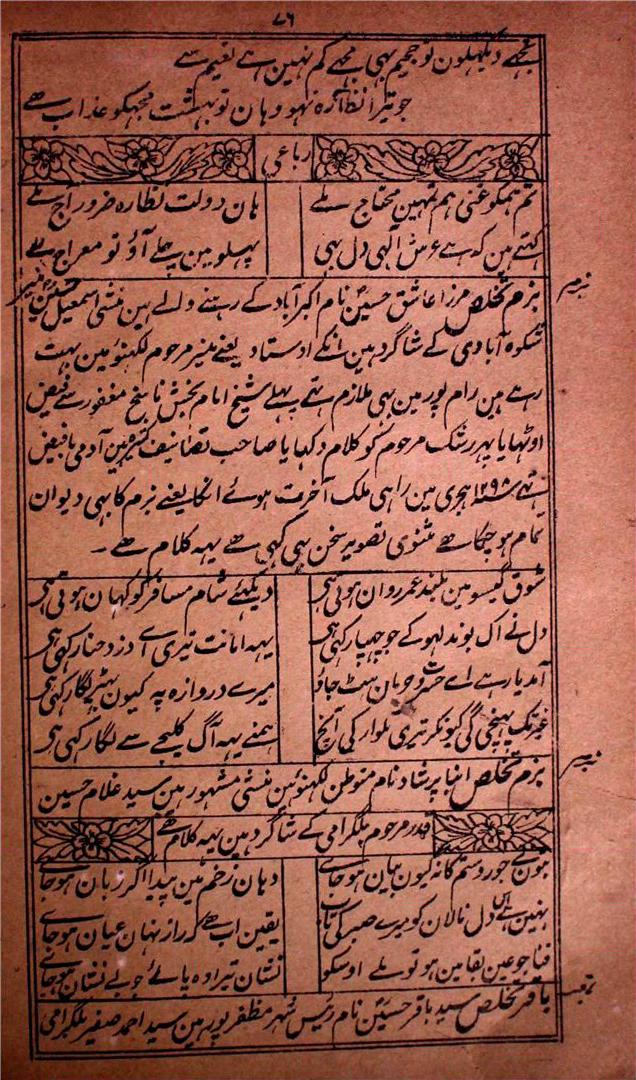 ۷۶
تجھے دیکھلون تو جحیم بہی مجھے کم نہین ہے نعیم سے
جو تیرا نظارہ نہو وہان تو بہشت مجھکو عذاب ہے
رباعی
تم ہمکو غنی ہم تمہین محتاج ملے ہان دولت نظارہ ضرور آج ملے
کہتے ہین کہ ہے عرش الٰہی دل بہی پہلو مین چلے آؤ تو معراج ملے
بزم تخلص مرزا عاشق حسین نام اکبرآباد کے رہنے والے ہین منشی اسمعیل حسین منیر
شکوہ آبادی کے شاگرد ہین انکے اوستاد یعنے منیر مرحوم لکھنؤ مین بہت
رہے ہین رام پور مین بہی ملازم تہے پہلے شیخ امام بخش ناسخ مغفور سے فیض
اوٹھایا پہر رشک مرحوم کو کلام دکہایا صاحب تصانیف کثیرہ ہین آدمی بافیض
تہے سنہ ۱۲۹۸ ہجری مین راہی ملک آخرت ہوئے انکا یعنے بزم کا بہی دیوان
تمام ہو چکا ہے مثنوی تصویر سخن بہی کہی ہے یہہ کلام ہے ۔
شوق گیسو مین بلند عمر روان ہوتی ہی دیکھئے شام مسافر کو کہان ہوتی ہی
دل نے اک بوند لہو کے جو چہپا رکہی ہی یہہ امانت تیری اے دزد حنا رکہی ہی
آمد یار ہے اے حسرت و حرمان ہٹ جاؤ میرے دروازہ پہ کیون بہیڑ لگا رکہی ہی
غیر تک پہنچی گی کیونکر تیری تلوار کی آنچ ہمنے یہہ آگ کلیجے سے لگا رکہی ہی
بزم تخلص انبا پرشاد نام متوطن لکھنؤ ہین منشی مشہور ہین سید غلام حسین
قدر مرحوم بلگرامی کے شاگرد ہین یہہ کلام ہے
جور و ستم کا نہ کیون بیان ہو جائے دہان زخم مین پیدا اگر زبان ہو جائے
نہین ہے دل نالان کو میرے صبر کی تاب یقین اب ہے کہ راز نہان عیان ہو جائے
فنا جو عین بقا مین ہو تو ملے اوسکو نشان تیرا وہ پائے جو بے نشان ہو جائے
باقر تخلص سید باقر حسین نام رئیس شہر مظفرپور ہین سید احمد صفیر بلگرامی